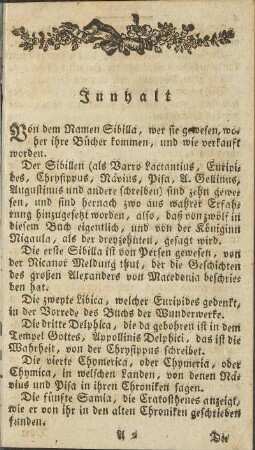 Innhalt
Von dem Namen Sibilla, wer sie gewesen, wo-
her ihre Bücher kommen, und wie verkauft
worden.
Der Sibillen (als Varro Lactantius, Euripi-
des, Chrysippus, Nävius, Pisa, A. Gellinus,
Augustinus und andere schreiben) sind zehn gewe-
sen, und sind hernach zwo aus wahrer Erfah-
rung hinzugesetzt worden, also, daß von zwölf in
diesem Buch eigentlich, und von der Königinn
Nigaula, als der dreyzehnten, gesagt wird.
Die erste Sibilla ist von Persen gewesen, von
der Nicanor Meldung thut, der die Geschichten
des großen Alexanders von Macedonia beschrie-
ben hat.
Die zweyte Libica, welcher Euripides gedenkt,
in der Vorrede des Buchs der Wunderwerke.
Die dritte Delphica, die da gebohren ist in dem
Tempel Gottes, Appollinis Delphici, das ist die
Wahrheit, von der Chrysippus schreibet.
Die vierte Chymerica, oder Chymeria, oder
Chymica, in welschen Landen, von denen Nä-
vius und Pisa in ihren Chroniken sagen.
Die fünfte Samia, die Eratosthenes anzeigt,
wie er von ihr in den alten Chroniken geschrieben
funden.
A 2 Die